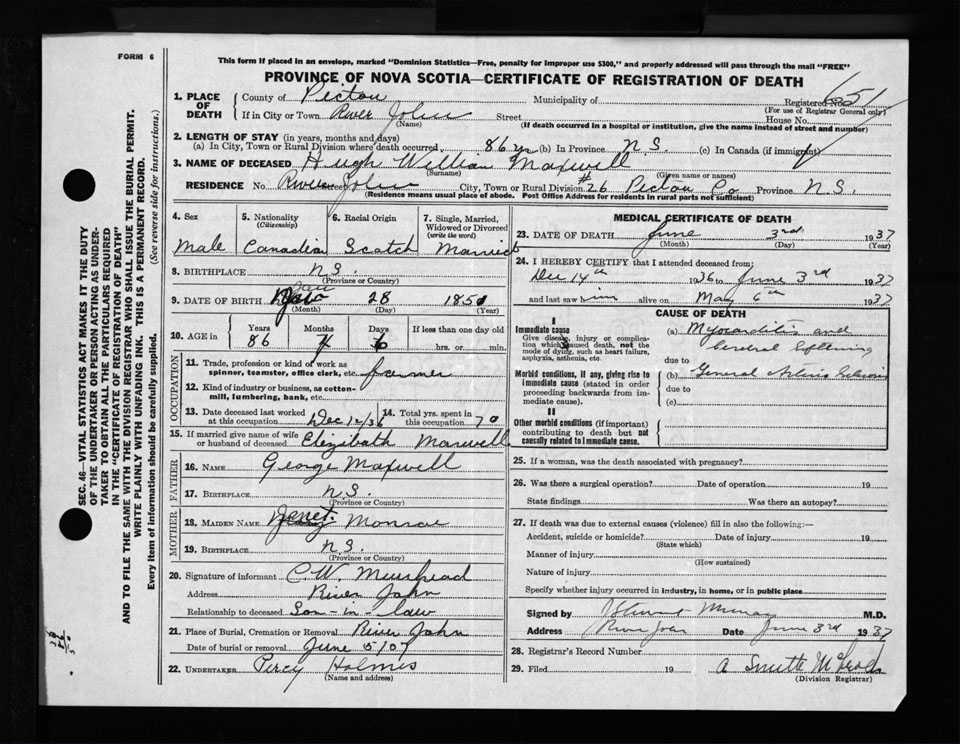 FORM 6
This form if placed in an envelope, marked "Dominion Statistics—Free, penalty for improper use $300," and properly addressed will pass through the mail "FREE"
PROVINCE OF NOVA SCOTIA—CERTIFICATE OF REGISTRATION OF DEATH
1. PLACE OF DEATH County of Pictou Municipality of Registered No. 651
(For use of Registrar General only)
If in City or Town River John Street House No.
(Name) (If death occurred in a hospital or institution, give the name instead of street and number)
2. LENGTH OF STAY (in years, months and days)
(a) In City, Town or Rural Division where death occurred. 86 yr (b) In Province N.S. (c) In Canada (if immigrant)
3. NAME OF DECEASED Hugh William Maxwell
(Surname) (Given name or names)
RESIDENCE No. River John City, Town or Rural Division #26 Pictou Co Province N.S.
(Residence means usual place of abode. Post Office Address for residents in rural parts not sufficient)
4. Sex 5. Nationality (Citizenship) 6. Racial Origin 7. Single, Married, Widowed or Divorced (write the word)
Male Canadian Scotch Married
8. BIRTHPLACE N.S.
(Province or Country)
9. DATE OF BIRTH Jan 28 1851
(Month) (Day) (Year)
10. AGE in Years Months Days If less than one day old
86 4 6 hrs. or min.
OCCUPATION
11. Trade, profession or kind of work as spinner, teamster, office clerk, etc. farmer
12. Kind of industry or business, as cotton-mill, lumbering, bank, etc.
13. Date deceased last worked at this occupation Dec 12/36 14. Total yrs. spent in this occupation 70
15. If married give name of wife or husband of deceased Elizibath Maxwell
FATHER
16. NAME George Maxwell
17. BIRTHPLACE N.S.
(Province or Country)
MOTHER
18. MAIDEN NAME Janet Monroe
19. BIRTHPLACE N.S.
(Province or Country)
20. Signature of informant C.W. Muirhead
Address River John
Relationship to deceased Son-in-law
21. Place of Burial, Cremation or Removal River John
Date of burial or removal June 5/37
22. UNDERTAKER Percy Holmes
(Name and address)
MEDICAL CERTIFICATE OF DEATH
23. DATE OF DEATH June 3rd 1937
(Month) (Day) (Year)
24. I HEREBY CERTIFY that I attended deceased from:
Dec 14th 1936 to June 3rd 1937
and last saw him alive on May 6th 1937
CAUSE OF DEATH
I
Immediate cause
Give disease, injury or complication which caused death, not the mode of dying, such as heart failure, asphyxia, asthenia, etc.
(a) Myocarditis and
Cerebral Softening
due to
Morbid conditions, if any, giving rise to immediate cause (stated in order proceeding backwards from immediate cause).
(b) General Arterio Sclerosis
due to
(c)
II
Other morbid conditions (if important) contributing to death but not causally related to immediate cause.
25. If a woman, was the death associated with pregnancy?
26. Was there a surgical operation? Date of operation 19
State findings Was there an autopsy?
27. If death was due to external causes (violence) fill in also the following:—
Accident, suicide or homicide? Date of injury 19
(State which)
Manner of injury
(How sustained)
Nature of injury
Specify whether injury occurred in industry, in home, or in public place
Signed by Murray M.D.
Address River John Date June 3rd 1937
28. Registrar's Record Number
29. Filed 19
(Division Registrar)
SEC. 46—VITAL STATISTICS ACT MAKES IT THE DUTY
OF THE UNDERTAKER OR PERSON ACTING AS UNDER-
TAKER TO OBTAIN ALL THE PARTICULARS REQUIRED
IN THE "CERTIFICATE OF REGISTRATION OF DEATH"
AND TO FILE THE SAME WITH THE DIVISION REGISTRAR WHO SHALL ISSUE THE BURIAL PERMIT.
WRITE PLAINLY WITH UNFADING INK. THIS IS A PERMANENT RECORD.
Every item of information should be carefully supplied. (See reverse side for instructions.)